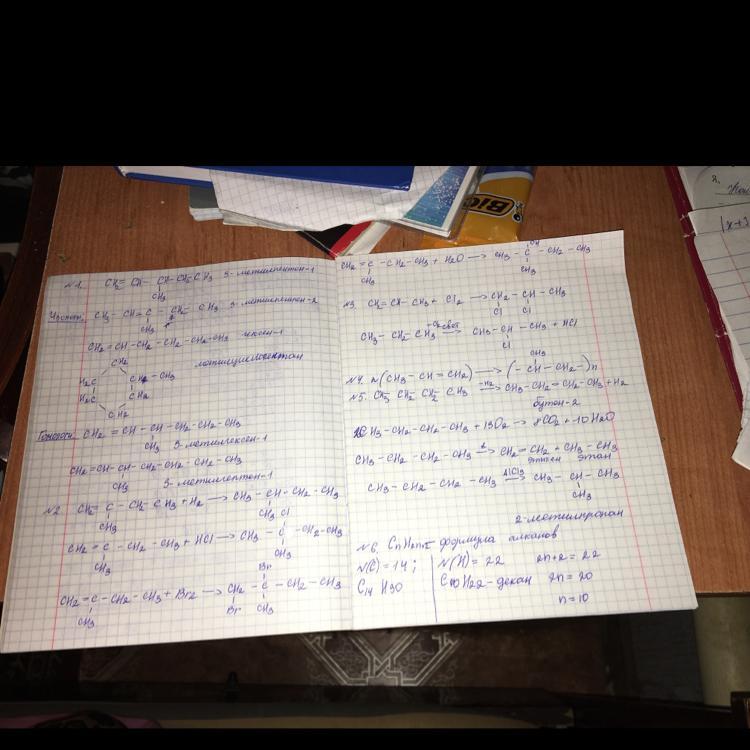 №1. CH2=CH-CH-CH2-CH3 3-метилпентен-1
CH3
Изомеры:
CH3-CH=C-CH2-CH3 3-метилпентен-2
CH3
CH2=CH-CH2-CH2-CH2-CH3 гексен-1
CH2
H2C CH-CH3
метилциклопентан
H2C CH2
Гомологи: CH2=CH-CH-CH2-CH2-CH3
CH3 3-метилгексен-1
CH2=CH-CH-CH2-CH2-CH2-CH3
CH3 3-метилгептен-1
№2 CH2=C-CH2-CH3+H2→CH3-CH-CH2-CH3
CH3 CH3
CH2=C-CH2-CH3+HCl→CH3-C-CH2-CH3
Cl
CH3 CH3
Br
CH2=C-CH2-CH3+Br2→CH2-C-CH2-CH3
CH3 Br CH3
OH
CH2=C-CH2-CH3+H2O→CH3-C-CH2-CH3
CH3 CH3
№3. CH2=CH-CH3+Cl2→CH2-CH-CH3
Cl Cl
CH3-CH2-CH3 →CH3-CH-CH3+HCl
Cl
CH3
№4. n(CH3-CH=CH2)→(-CH-CH2-)n
№5. CH3 CH2 CH2 CH3 -H2→CH3-CH2=CH2-CH3+H2
бутен-2
CH3-CH2-CH2-CH3+13O2→8CO2+10H2O
CH3-CH2-CH2-CH3 t→CH2=CH2+CH3-CH3
этилен этан
CH3-CH2-CH2-CH3 AlCl3→CH3-CH-CH3
CH3
2-метилпропан
№6. CnH2n+2 формула алканов
N(C)=14; N(H)=22 2n+2=22
C14H30 C10H22-декан 2n=20
n=10
BIC